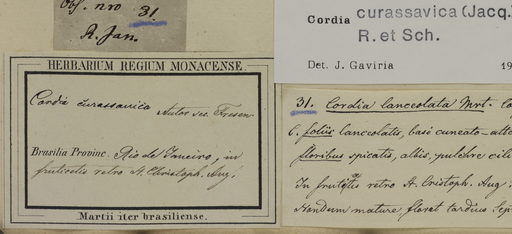 Obs. nro 31
R. Jan.
Cordia curassavica (Jacq.)
R. et Sch.
Det. J. Gaviria 19
HERBARIUM REGIUM MONACENSE.
Cordia curassavica Autor sec. Fresen.
Brasilia Provinc. Rio de Janeiro, in
fruticetis retro St. Christoph. Aug.
Martii iter brasiliense.
31. Cordia lanceolata Mrt.
C. foliis lanceolatis, basi cuneato-
floribus spicatis, albis, pulchre
In retro St. Cristoph. Aug
Nondum mature floret tardius Sept